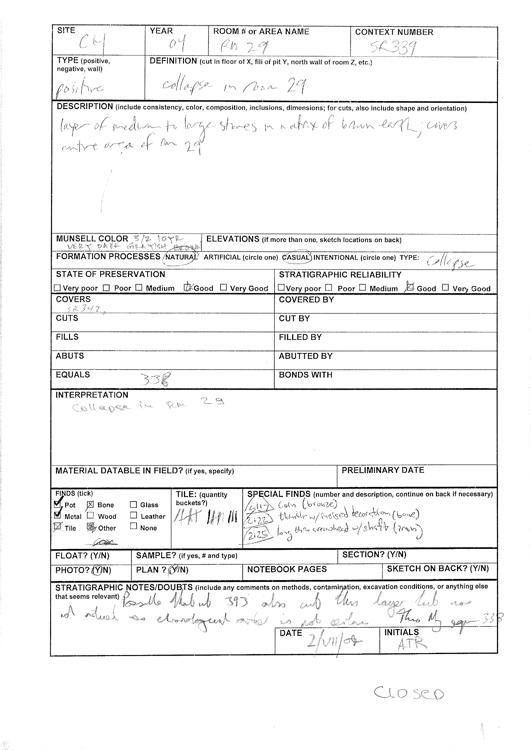 SITE YEAR ROOM # or AREA NAME CONTEXT NUMBER
CH 04 RM 29 SR339
TYPE (positive, negative, wall) DEFINITION (cut in floor of X, fill of pit Y, north wall of room Z, etc.)
positive collapse in room 29
DESCRIPTION (include consistency, color, composition, inclusions, dimensions; for cuts, also include shape and orientation)
layer of medium to large stones in matrix of brown earth, covers
entire area of rm 29
MUNSELL COLOR 3/2 10YR ELEVATIONS (if more than one, sketch locations on back)
VERY DARK GRAYISH
FORMATION PROCESSES NATURAL ARTIFICIAL (circle one) CASUAL INTENTIONAL (circle one) TYPE: Collapse
STATE OF PRESERVATION STRATIGRAPHIC RELIABILITY
Very poor Poor Medium Good Very Good Very poor Poor Medium Good Very Good
COVERS COVERED BY
SR342
CUTS CUT BY
FILLS FILLED BY
ABUTS ABUTTED BY
EQUALS 338 BONDS WITH
INTERPRETATION
Collapse in RM 29
MATERIAL DATABLE IN FIELD? (if yes, specify) PRELIMINARY DATE
FINDS (tick) TILE: (quantity buckets?) SPECIAL FINDS (number and description, continue on back if necessary)
Pot Bone Glass coin (bronze)
Metal Wood Leather w/ incised decoration (bone)
Tile Other None long w/ shaft
FLOAT? (Y/N) SAMPLE? (if yes, # and type) SECTION? (Y/N)
PHOTO? (Y/N) PLAN? (Y/N) NOTEBOOK PAGES SKETCH ON BACK? (Y/N)
STRATIGRAPHIC NOTES/DOUBTS (include any comments on methods, contamination, excavation conditions, or anything else
that seems relevant) Possible that 393 also cut this layer but was
not noticed so chronological order is not This may 338
DATE INITIALS
2/VII/04 ATR
CLOSED